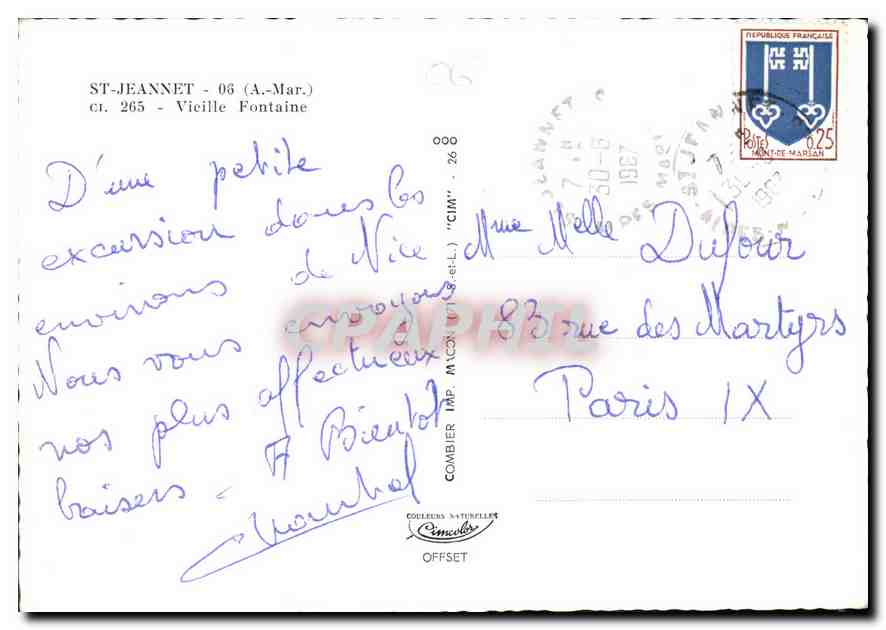 ST-JEANNET - 06 (A.-Mar.)
CI. 265 - Vieille Fontaine
D'une petite
excursion dans les
environs de Nice
Nous vous envoyons
nos plus affectueux
baisers - A Bientot
COMBIER IMP. MACON (S.-et-L.) "CIM" - 26
COULEURS NATURELLES
Cimcolor
OFFSET
REPUBLIQUE FRANÇAISE
POSTES 0,25
MONT-DE-MARSAN
ST JEANNET
30-6
1967
Mme Melle Dufour
83 rue des Martyrs
Paris IX
CPAPHIL